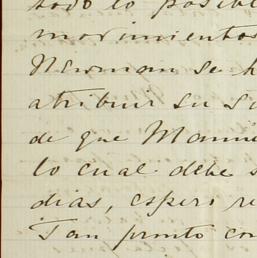 todo lo posible
movimientos
Newman se h
atribuir su s
de que Mann
lo cual debe s
dias, espero re
Tan pronto con